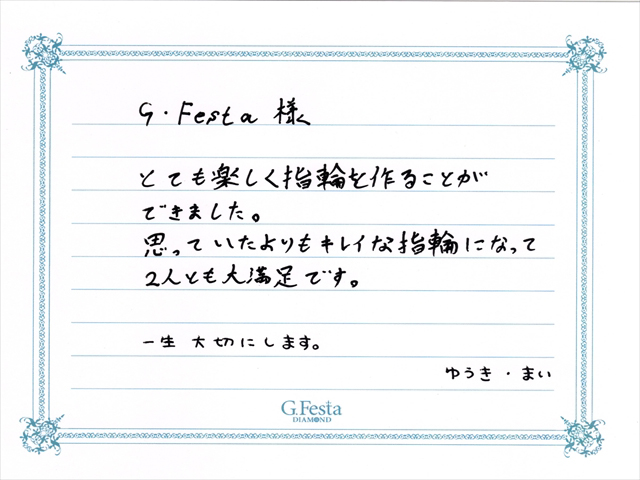 G・Festa 様
とても楽しく指輪を作ることが
できました。
思っていたよりもキレイな指輪になって
2人とも大満足です。
一生 大切にします。
ゆうき・まい
G.Festa
DIAMOND